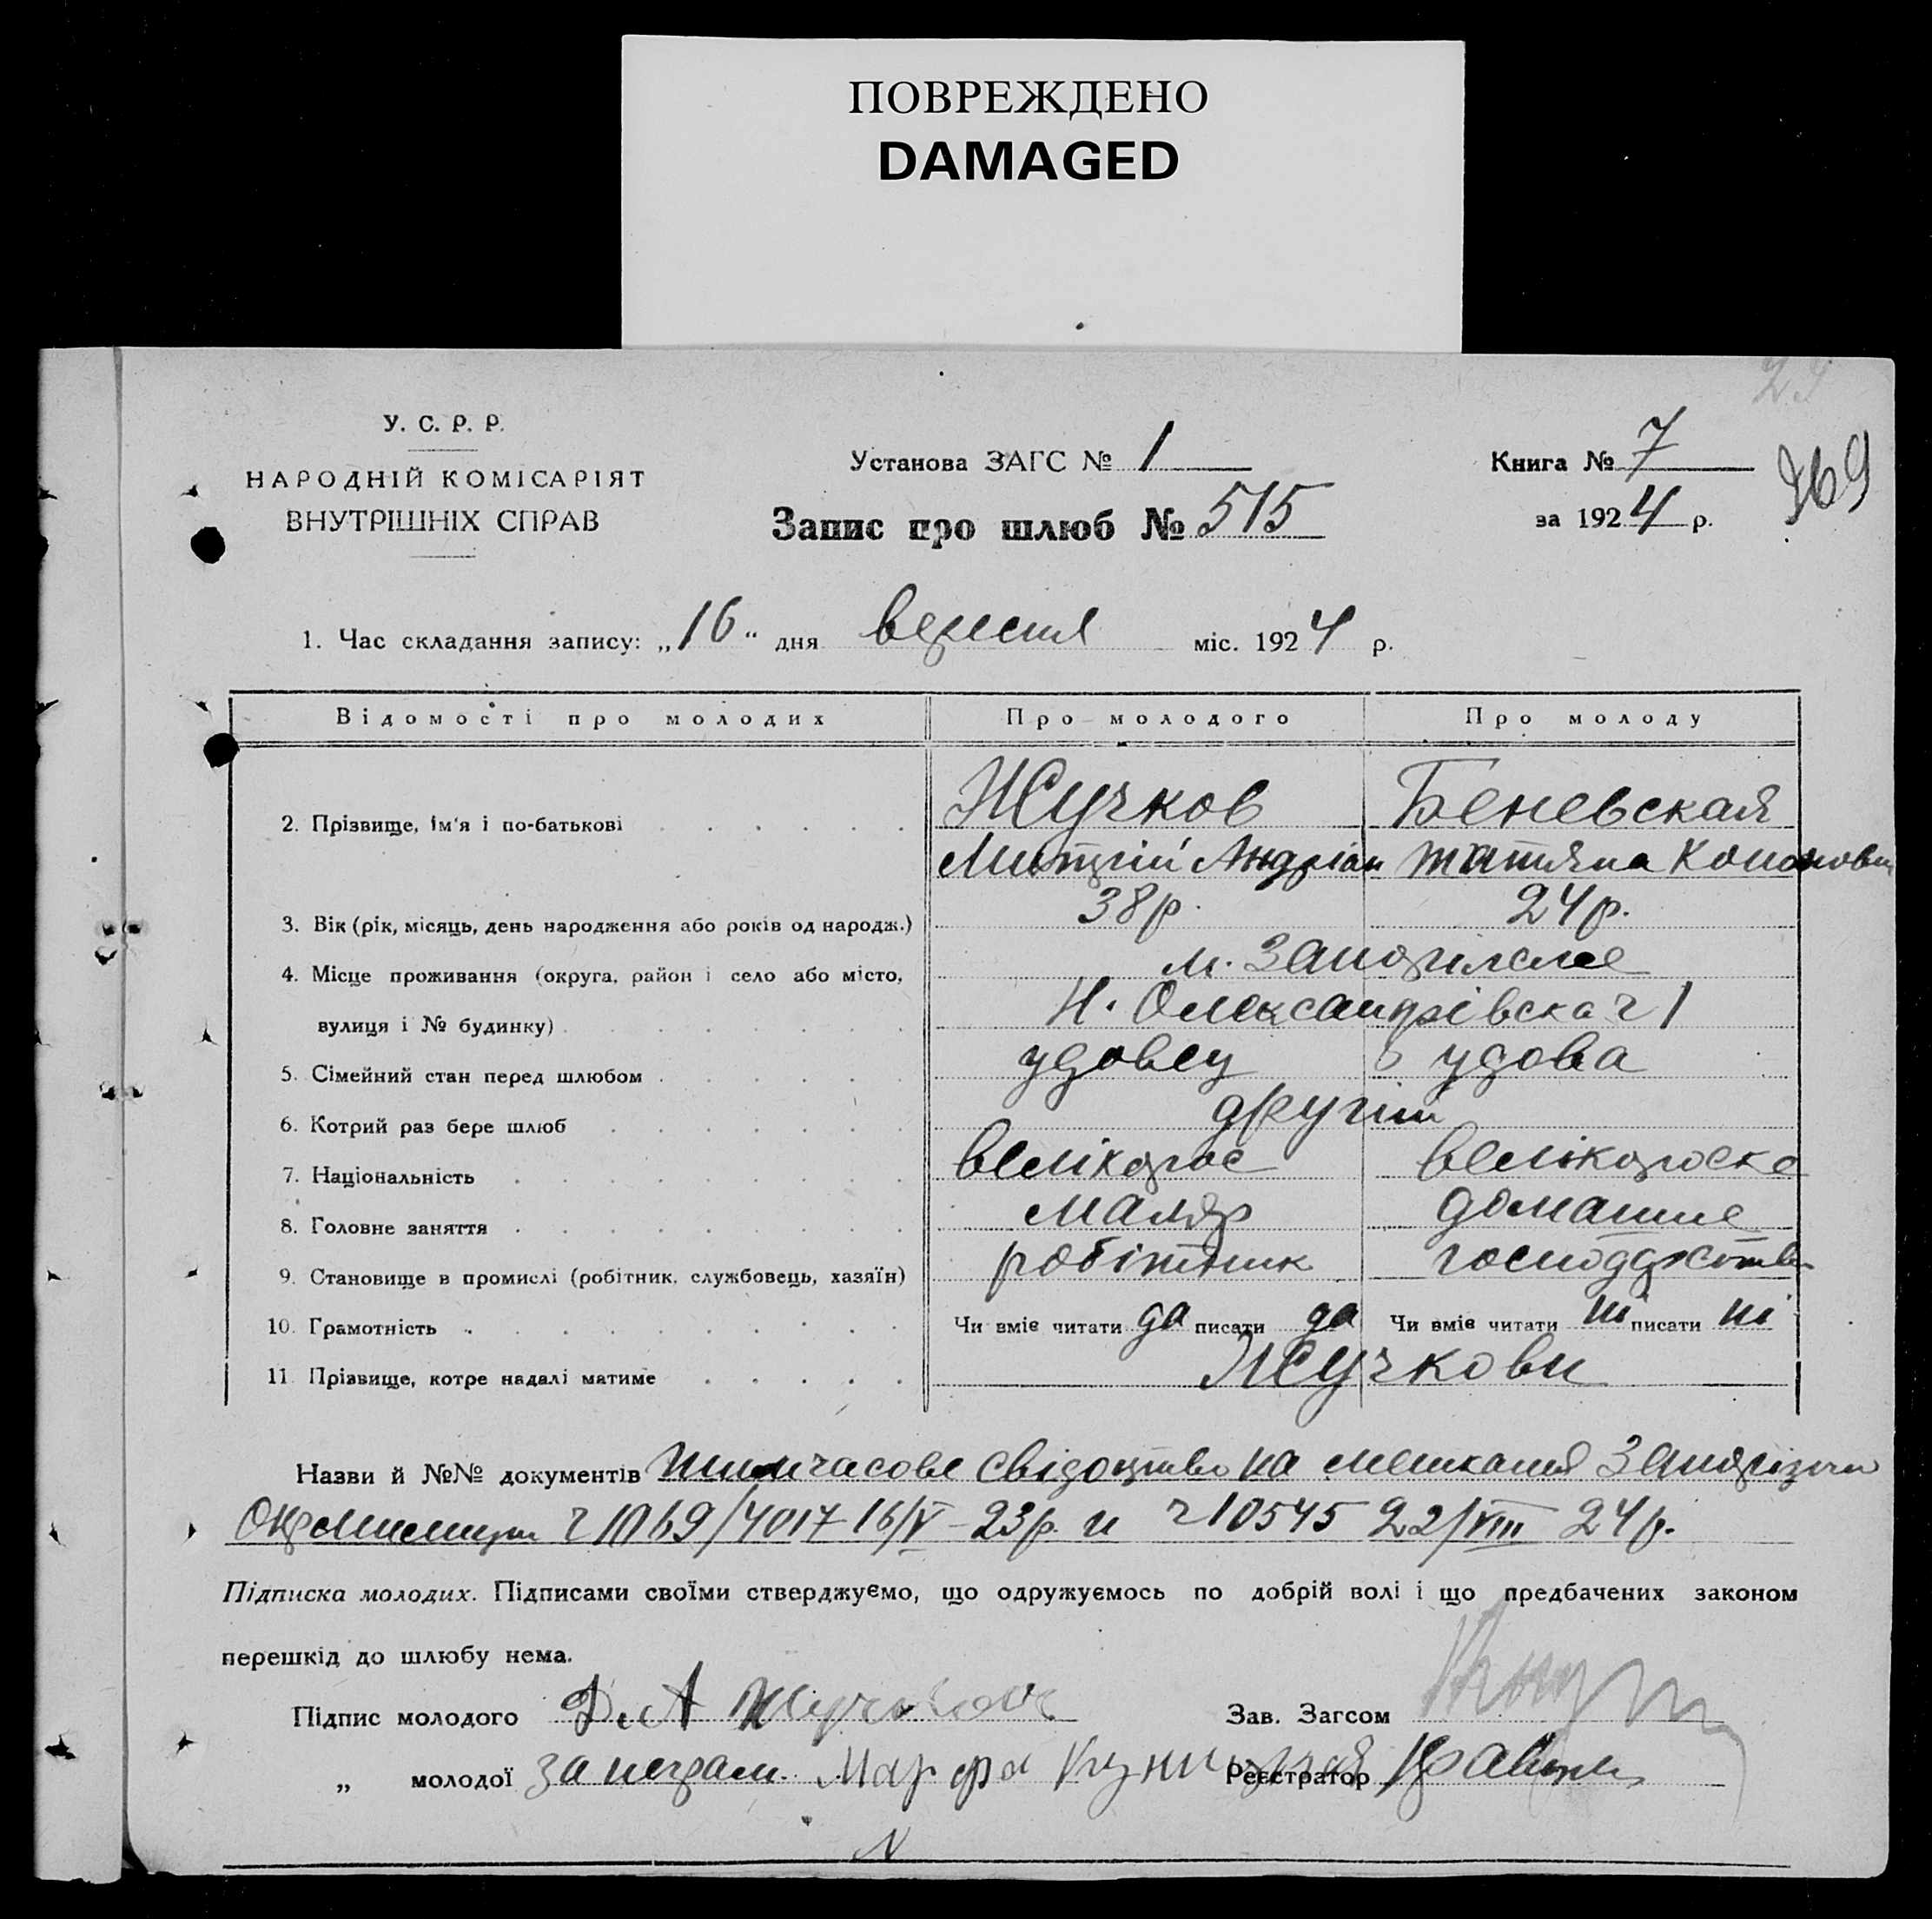 ПОВРЕЖДЕНО
DAMAGED
У. С. Р. Р.
НАРОДНІЙ КОМІСАРІЯТ
ВНУТРІШНІХ СПРАВ
Установа ЗАГС № 1
Запис про шлюб № 515
Книга № 7
за 1924 р.
369
1. Час складання запису: „16“ дня вересня міс. 1924 р.
Відомості про молодих Про молодого Про молоду
2. Прізвище, ім'я і по-батькові Жучков Беневская
Митрій Андріян Татяна Кононовн
3. Вік (рік, місяць, день народження або років од народж.) 38 р. 24 р.
4. Місце проживання (округа, район і село або місто, м. Запоріжжє
вулиця і № будинку) Н. Олександрівска ч 1
5. Сімейний стан перед шлюбом удовец удова
6. Котрий раз бере шлюб другий
7. Національність велікорос велікороска
8. Головне заняття маляр домашнє
9. Становище в промислі (робітник, службовець, хазяїн) робітник
10. Грамотність Чи вміє читати да писати да Чи вміє читати ні писати ні
11. Прізвище, котре надалі матиме Жучкови
Назви й №№ документів тимчасове свідоцтво на мешкання
ч 1169/4017 16/V-23р. и ч 10545 22/VIII 24р.
Підписка молодих. Підписами своїми стверджуємо, що одружуємось по добрій волі і що предбачених законом
перешкід до шлюбу нема.
Підпис молодого Жучков Зав. Загсом
„ молодої За неграм. Марфа Реєстратор